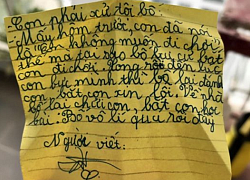 Con phải xử tội bố.
Mấy hôm trước, con đã nói
là "Con không muốn đi chơi"
thế mà tại sao bố lại cứ bắt
con đi chơi. Xong rồi đến lúc
con bực mình thì bố lại đánh
con, bắt con xin lỗi. Về nhà
bố lại chửi con, bắt con học
bài. Bố vô lí quá rồi đấy
Người viết: